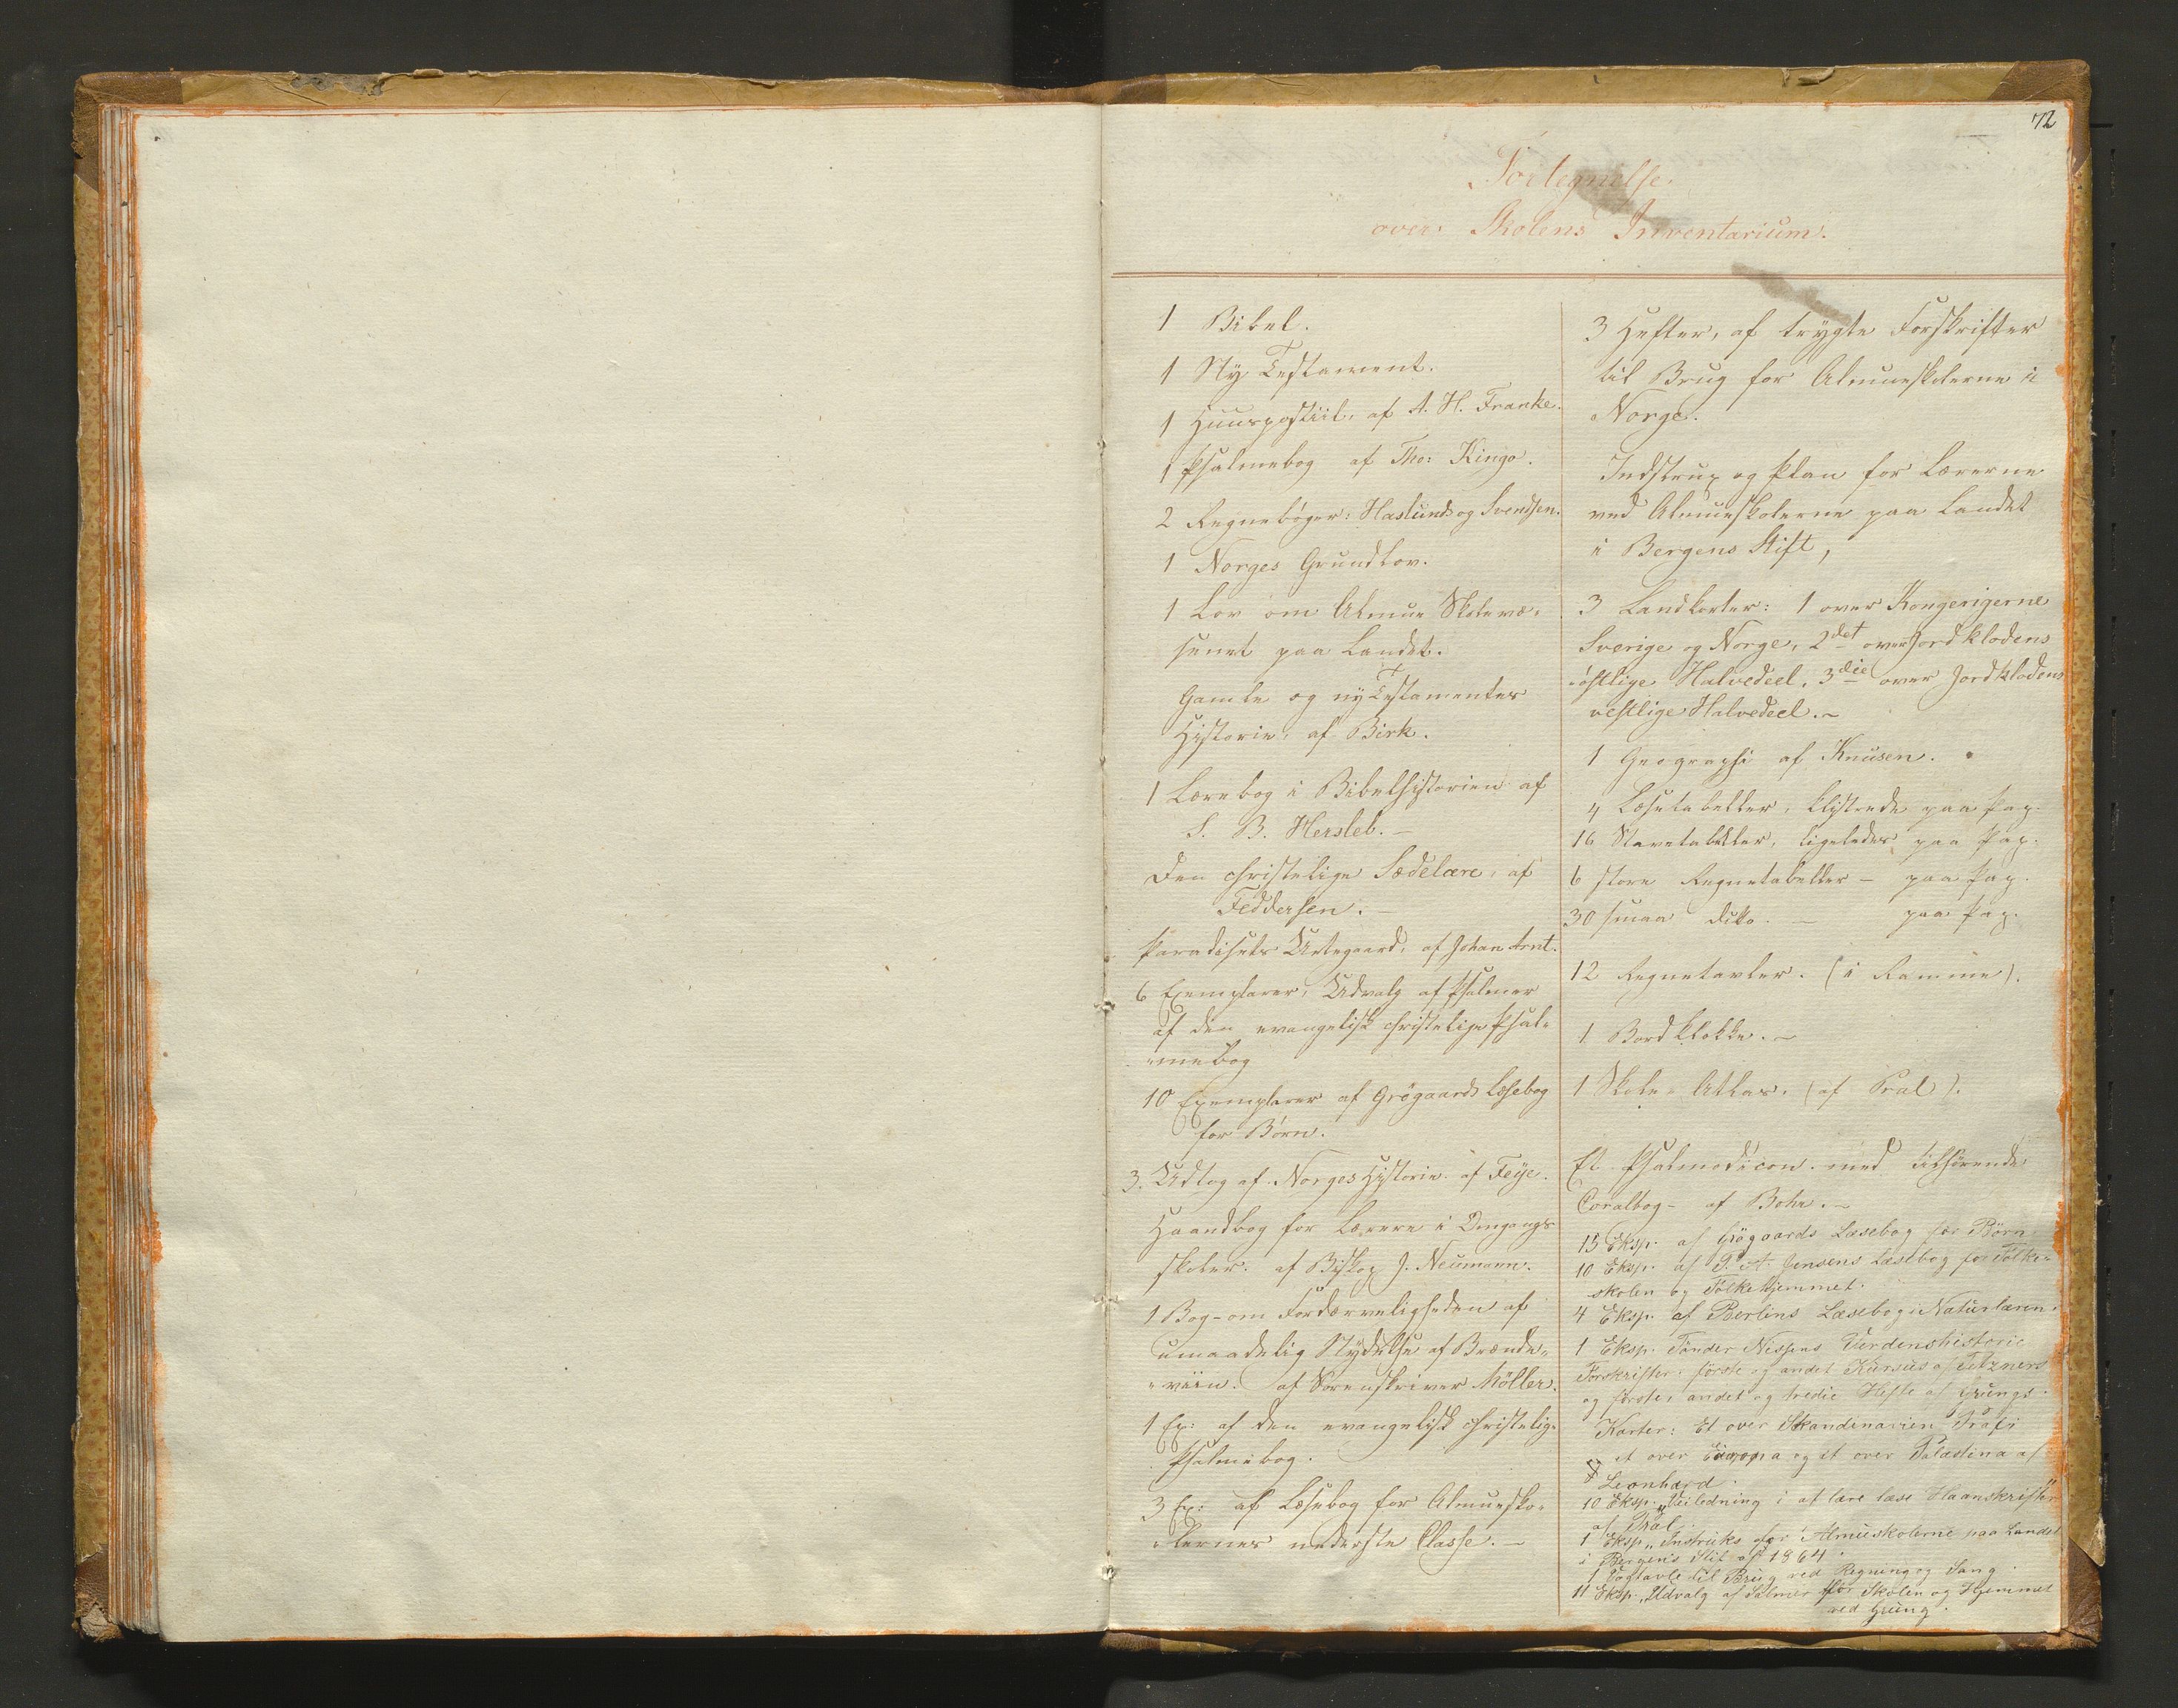 72
Fortegnelse
over Skolens Inventarium.
1 Bibel.
1 Ny Testament.
1 Huuspostiil, af A. H. Franke.
1 Psalmebog af Tho: Kingo.
2 Regnebøger: Haslunds og Svendsen.
1 Norges Grundlov.
1 Lov om Almue Skolevæ-
senet paa Landet.
Gamle og ny Testamentes
Historie, af Birk.
1 Lærebog i Bibelhistorien af
S. B. Hersleb. -
Den christelige Sædelære, af
Feddersen. -
Paradisets Urtegaard, af Johan Arnt.
6 Exemplarer, Udvalg af Psalmer
af den evangelisk christelige Psal-
mebog
10 Exemplarer af Grøgaards Læsebog
for Børn.
3. Udtog af Norges Historie af Feye.
Haandbog for Lærere i Omgangs
skoler. af Biskop J. Neumann.
1 Bog-om Fordærveligheden af
umaadelig Nydelse af Brænde-
viin. af Sorenskriver Möller.
1 Ex: af den evangelisk christelige
Psalmebog.
3 Ex: af Læsebog for Almuesko-
lernes nederste Classe. -
3 Hefter, af trygte Forskrifter
til Brug for Almueskolerne i
Norge.
Indstrux og Plan for Lærerne
ved Almueskolerne paa Landet
i Bergens Stift,
3 Landkorter: 1 over Kongerigerne
Sverige og Norge, 2det over Jordklodens
östlige Halvedeel, 3die over Jordklodens
vestlige Halvedeel. -
1 Geographi af Knüsen.
4 Læsetabeller, klistrede paa Pap.
16 Stavetabeller, ligeledes paa Pap.
6 store Regnetabeller - paa Pap.
30 smaa dito. - paa Pap.
12 Regnetavler. (i Ramme).
1 Bordklokke. -
1 Skole-Atlas. (af Pral).
Et Psalmodicon med tilhørende
Coralbog - af Bohr. -
15 Eksp. af Grögaards Læsebog for Börn
10 Eksp. af P. A. Jensens Læsebog for Folke-
skolen og Folkehjemmet.
4 Eksp. af Berlins Læsebog i Naturlæren.
1 Eksp. Tönder Nissens Verdenshistorie
Forskrifter: förste og andet Kursus af
og förste, andet og tredie Hefte af Grungs.
Karter: Et over Skandinavien
et over Europa og et over Palæstina af
Leonhard
10 Eksp. "Veiledning i at lære læse Haanskrift"
af Pral.
1 Eksp. "Instruks for Almueskolerne paa Landet
i Bergens Stit af 1864.
1 Vægtavle til Brug ved Regning og Sang.
11 Eksp. "Udvalg af Salmer for Skolen og Hjemmet
ved Grung.